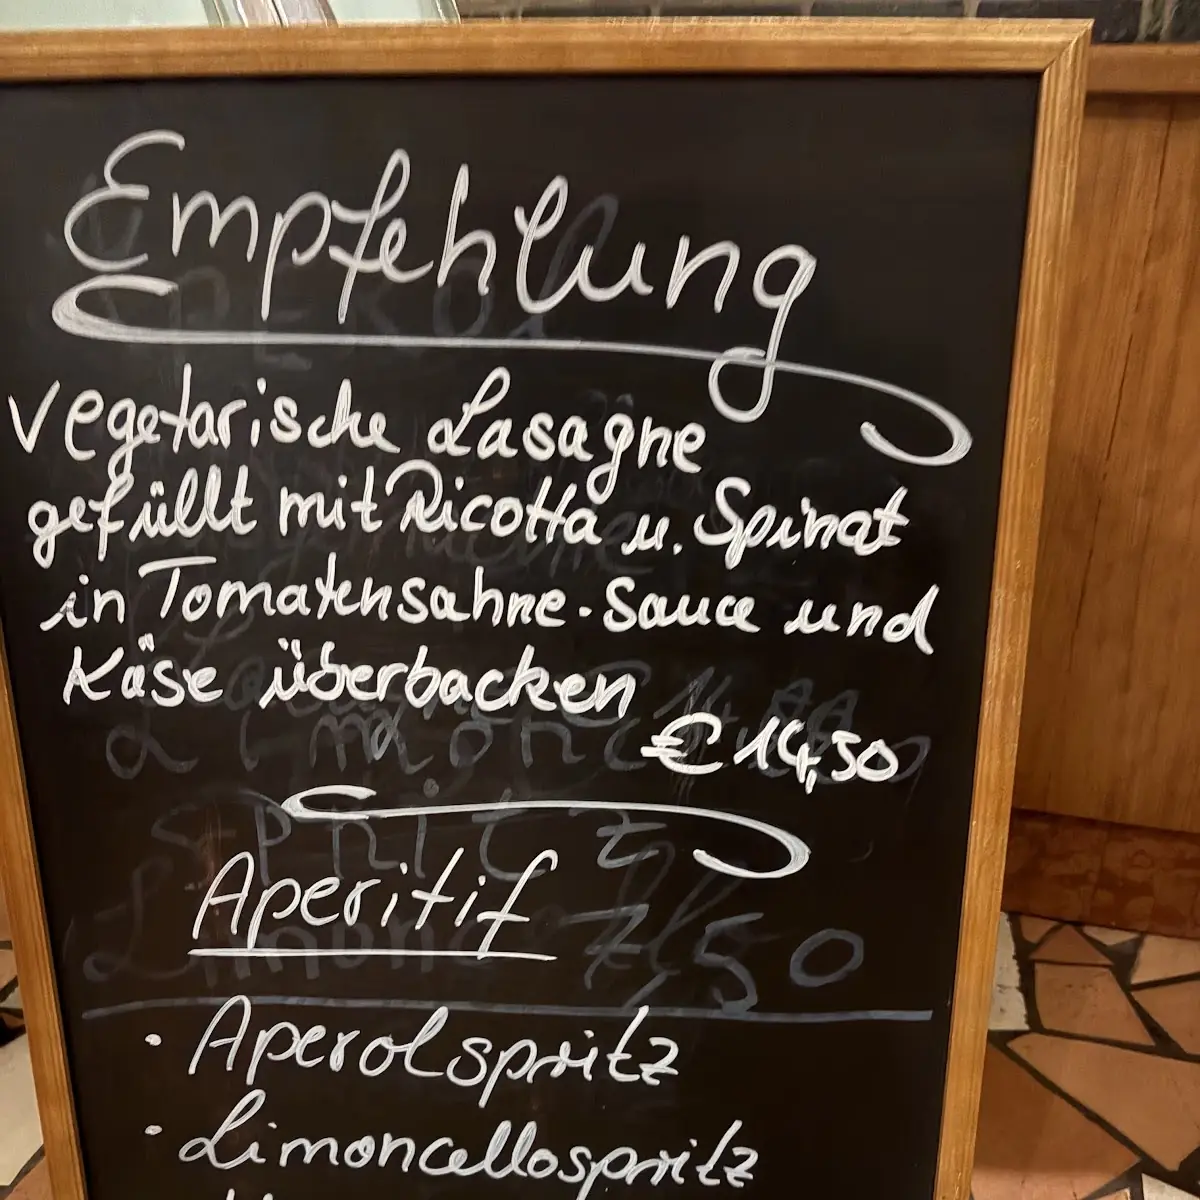 Empfehlung
Vegetarische Lasagne
gefüllt mit Ricotta u. Spinat
in Tomatensahne-Sauce und
Käse überbacken
€ 14,50
Aperitif
• Aperolspritz
• Limoncellospritz